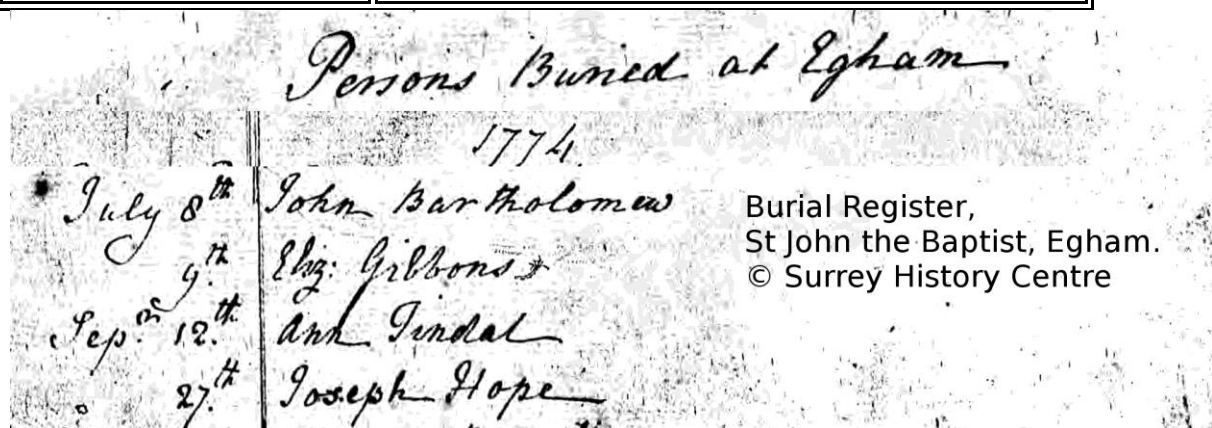 Persons Buried at Egham
1774
July 8th John Bartholomew
9th Eliz: Gibbons
Sepr 12th Ann Tindal
27th Joseph Hope
Burial Register,
St John the Baptist, Egham.
© Surrey History Centre